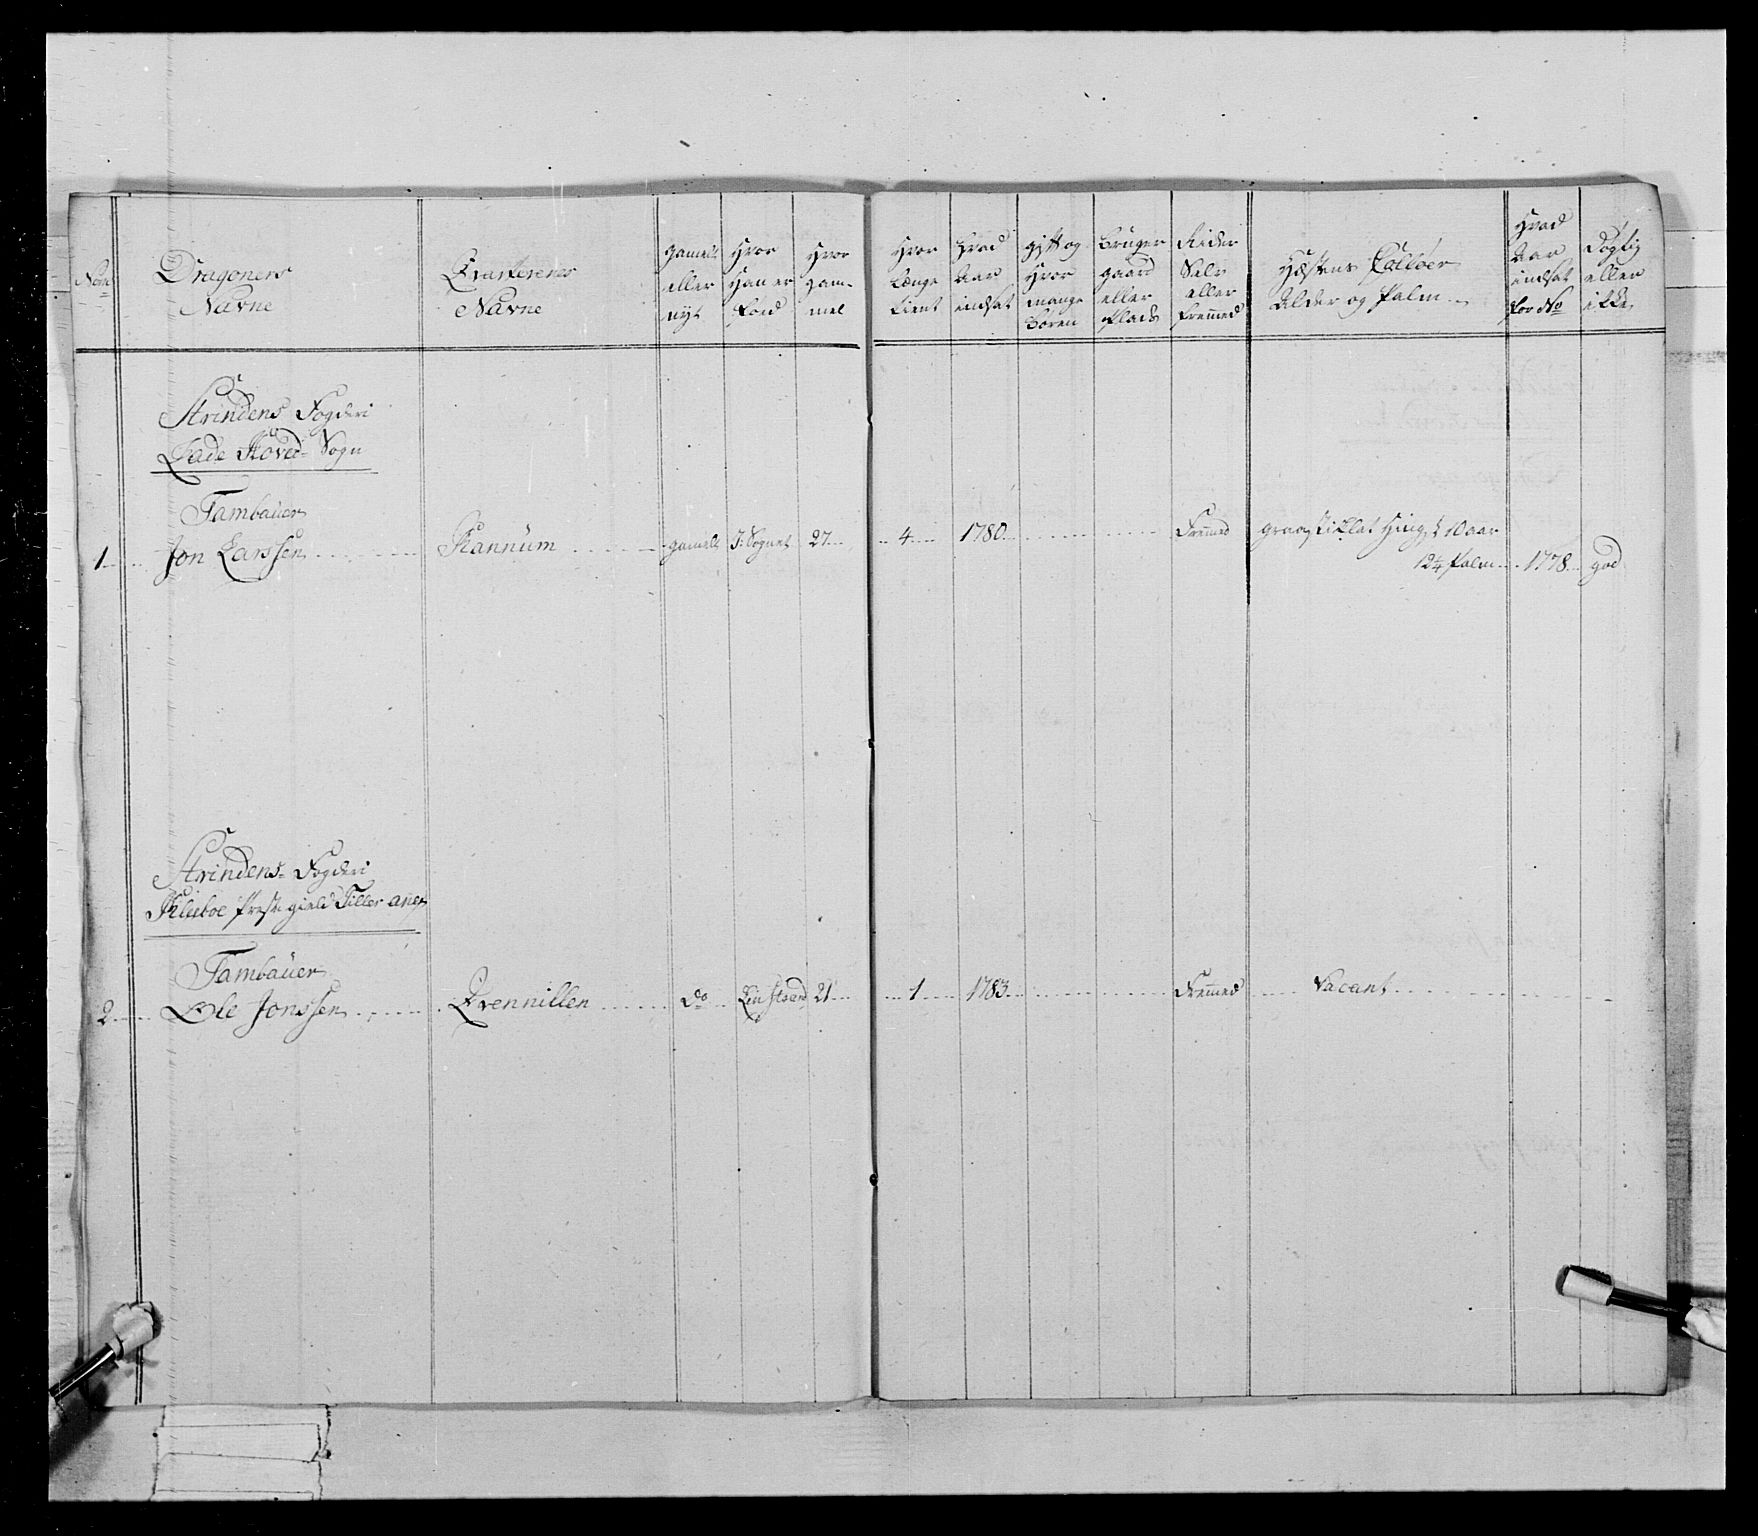 No
Dragoners
Navne
Qvarterenes
Navne
gamel
eller
nye
Hvor
Han er
Fød
Hvor
gam-
mel
Hvor
Længe
tient
Hvad
Aar
indsat
gift og
Hvor
mange
Børen
bruger
gaard
eller
Plads
Rider
Selv
eller
fremmed
Hæstens Colløer
Alder og Palm
Hvad
Aar
indsat
for No
Dygtig
eller
ikke
Strindens Fogderi
Lade Hoved Sogn
Tambauer
1 Jon Larssen Rannum gamel I Sognet 27 4 1780 Fremmed graa Hingst 10 aar
12¼ Palm 1778 god
Strindens Fogderi
Kleboe Prestegield Tiller Anex
Tambauer
2 Ole Jonssen Qvennillen do Leinstrand 21 1 1783 Fremmed Vacant